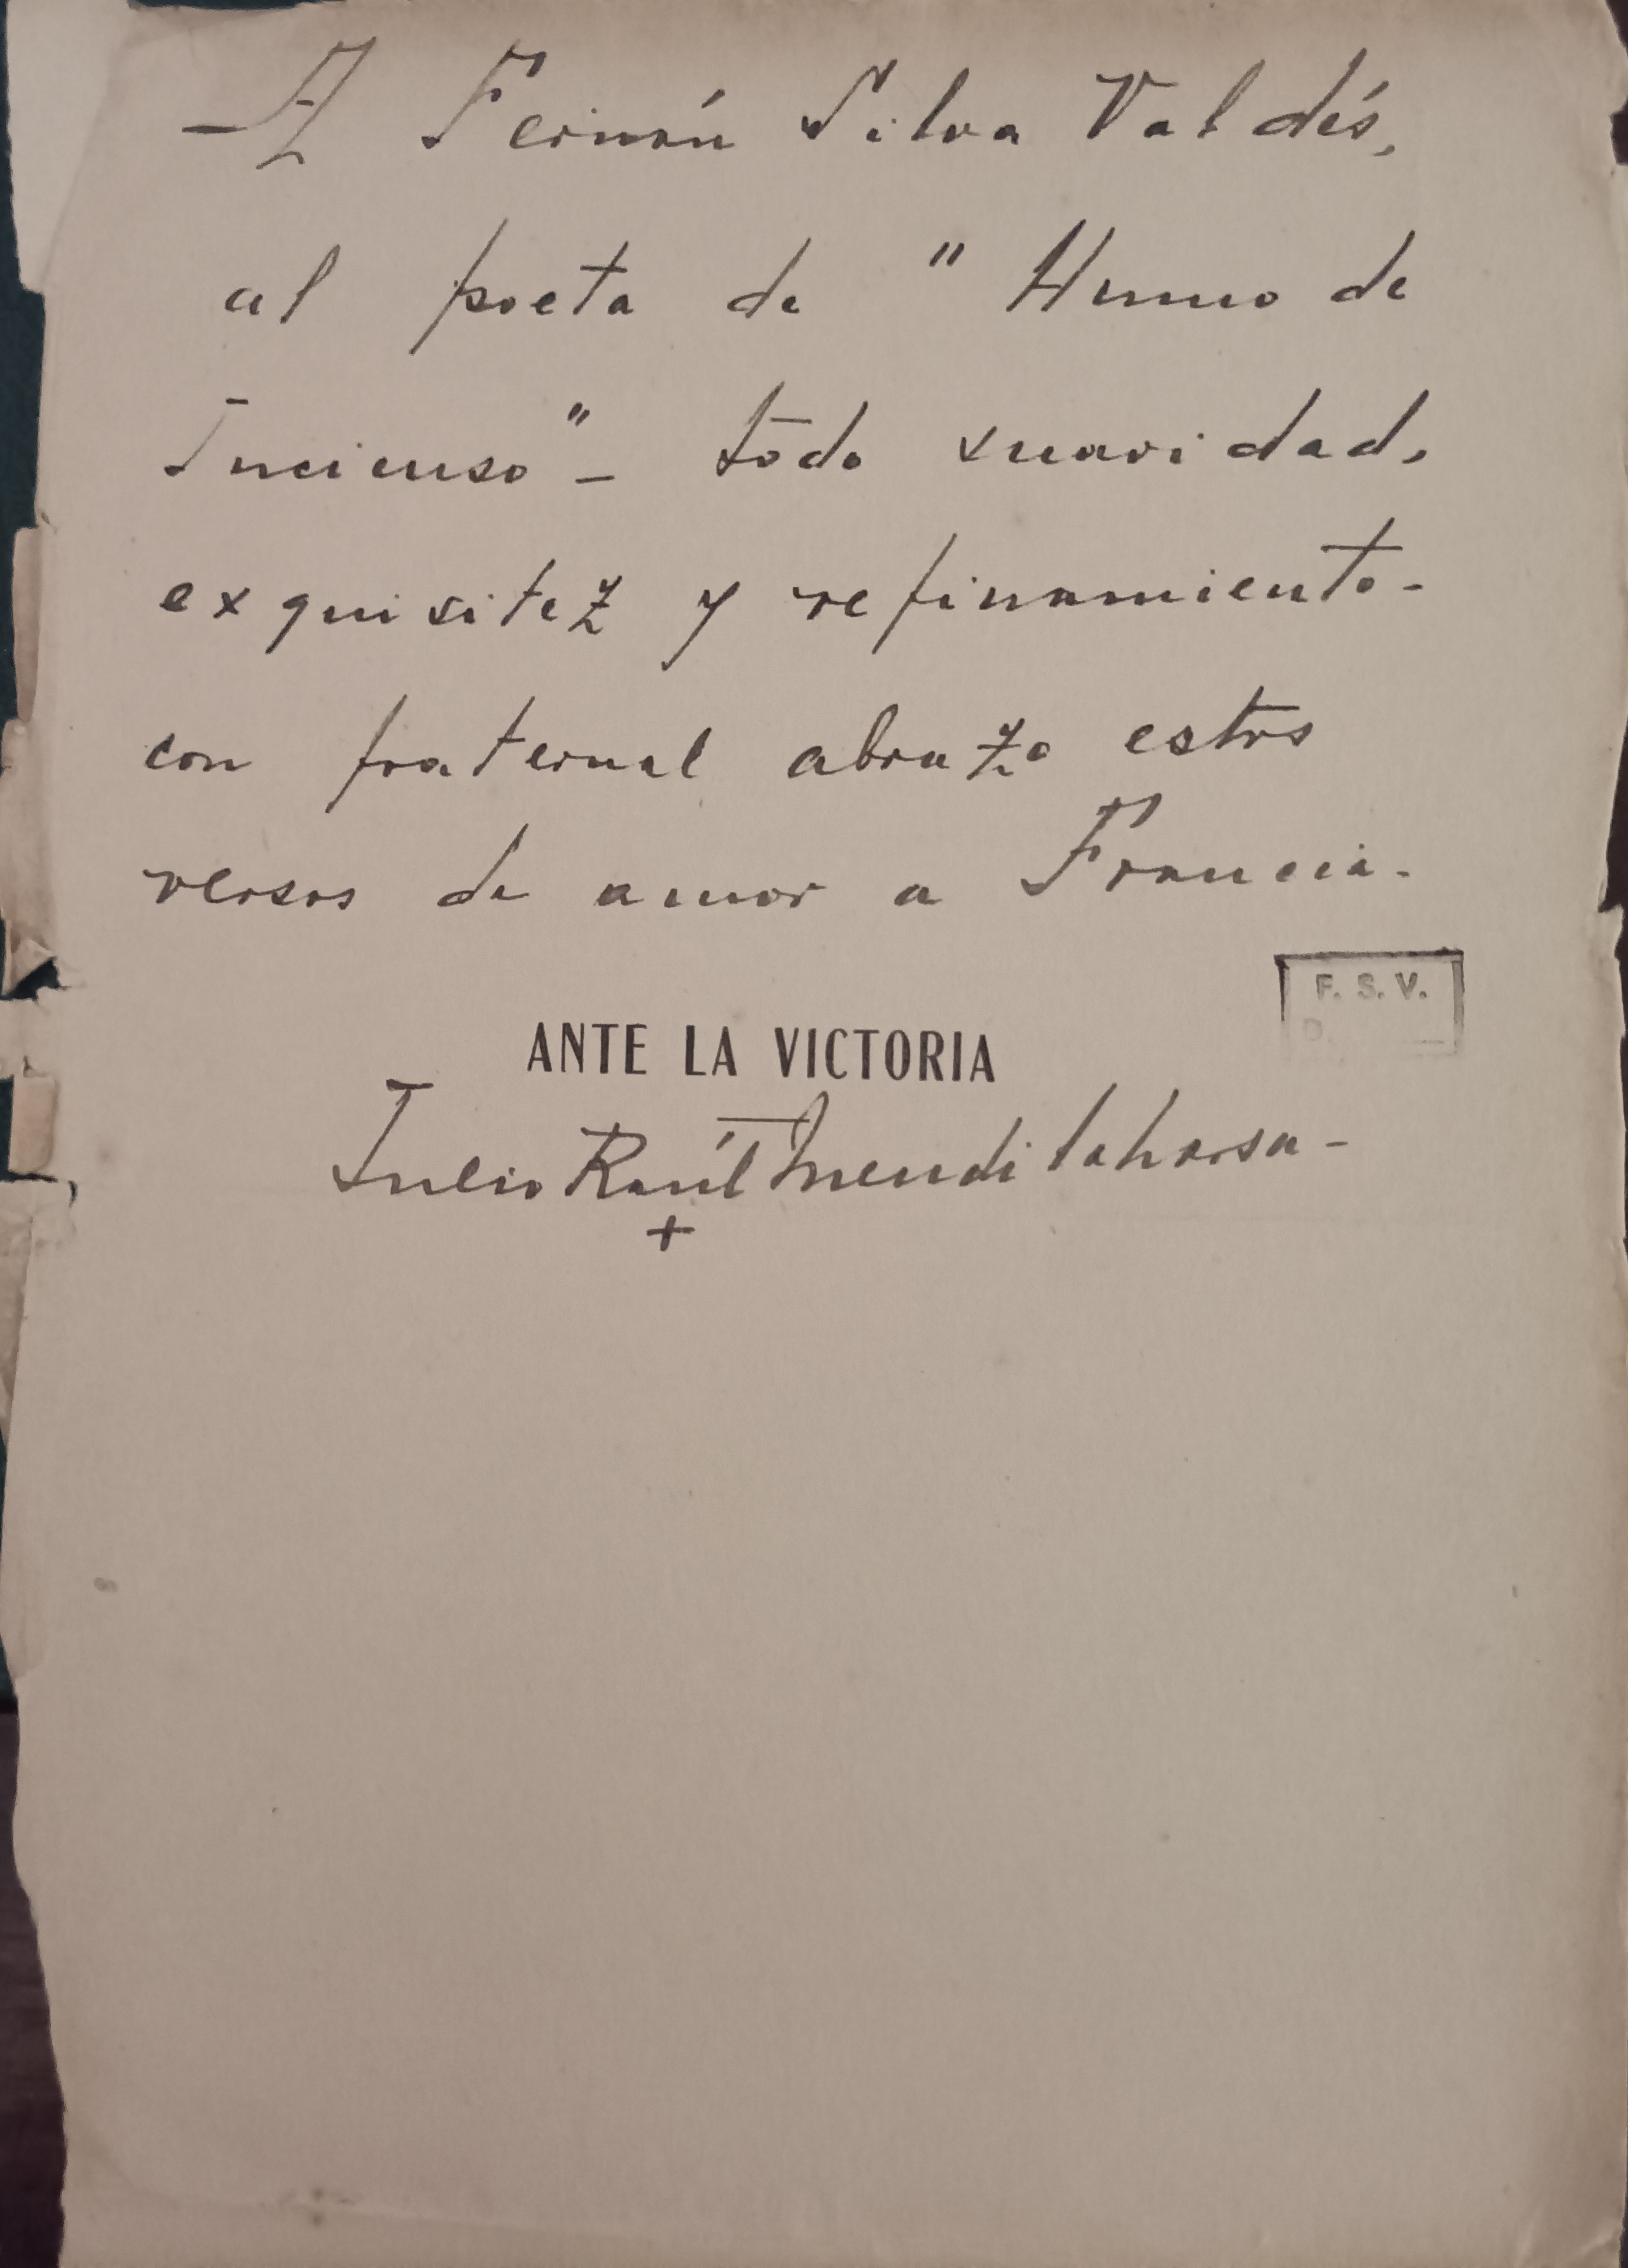 — A Fernán Silva Valdés,
al poeta de " Humo de
Incienso" - todo suavidad,
exquisitez y refinamiento -
con fraternal abrazo estos
versos de amor a Francia.
F. S. V.
ANTE LA VICTORIA
Julio Raúl Mendilaharsu -
+